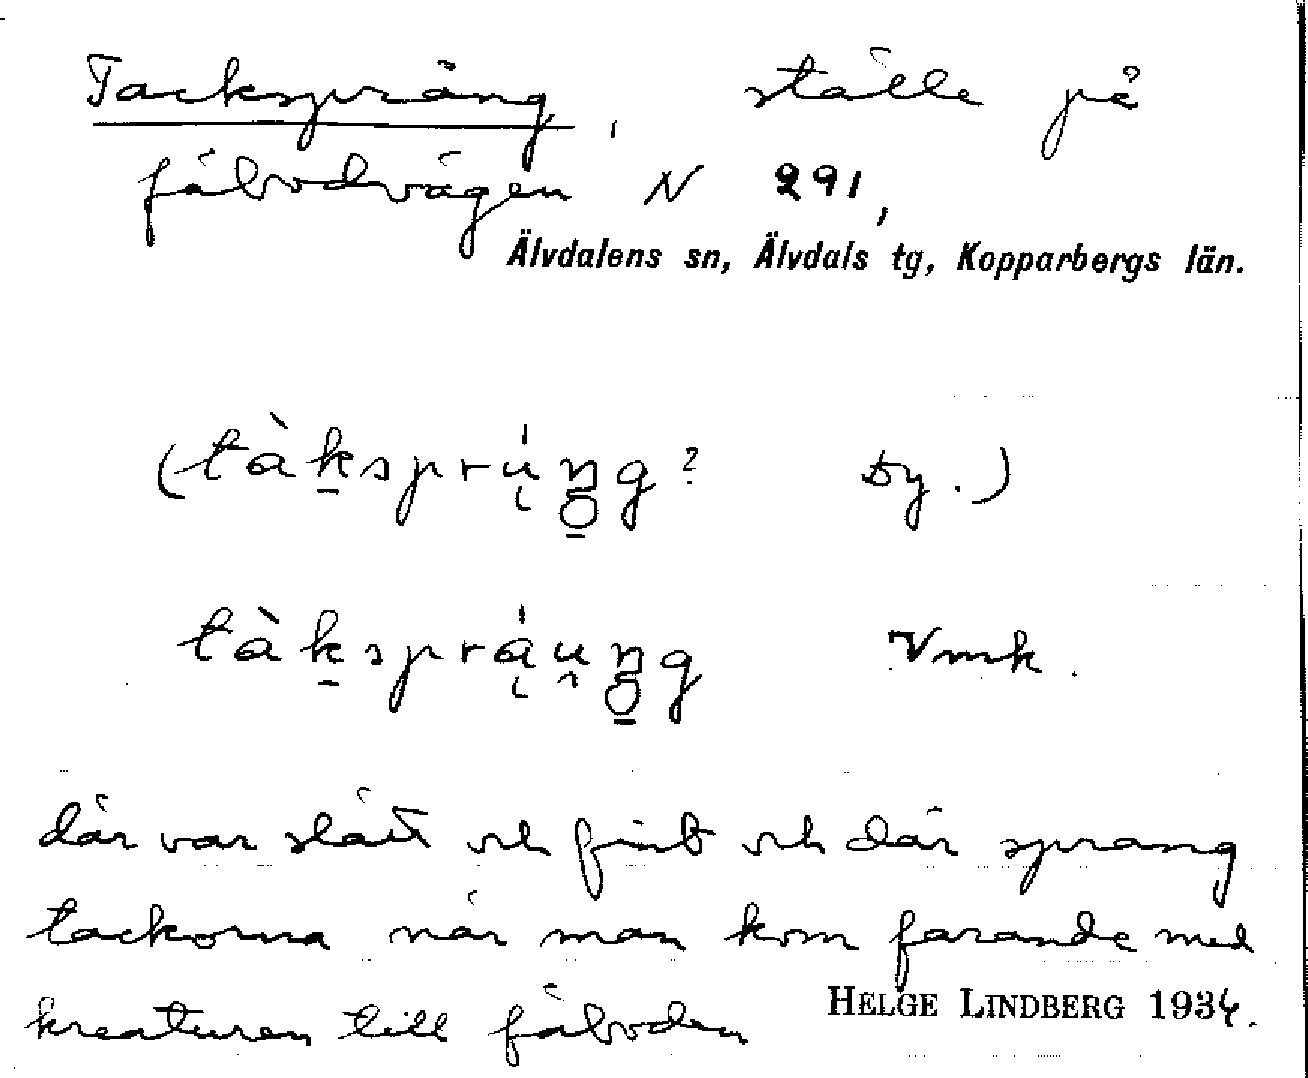 Tackspräng, ställe på
fäbodvägen N 291,
Älvdalens sn, Älvdals tg, Kopparbergs län.
(tàk̠sprų́ŋg? Dy.)
tàk̠sprą́u̯ŋg Vmk.
där var slätt och fint och där sprang
tackorna när man kom farande med
kreaturen till fäboden
HELGE LINDBERG 1934.